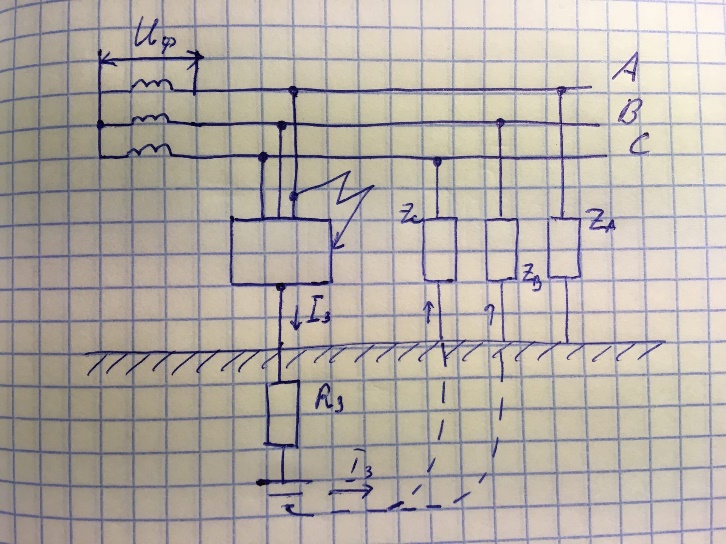 Uф
A
B
C
Zc
ZA
ZB
Iз
Rз
Iз